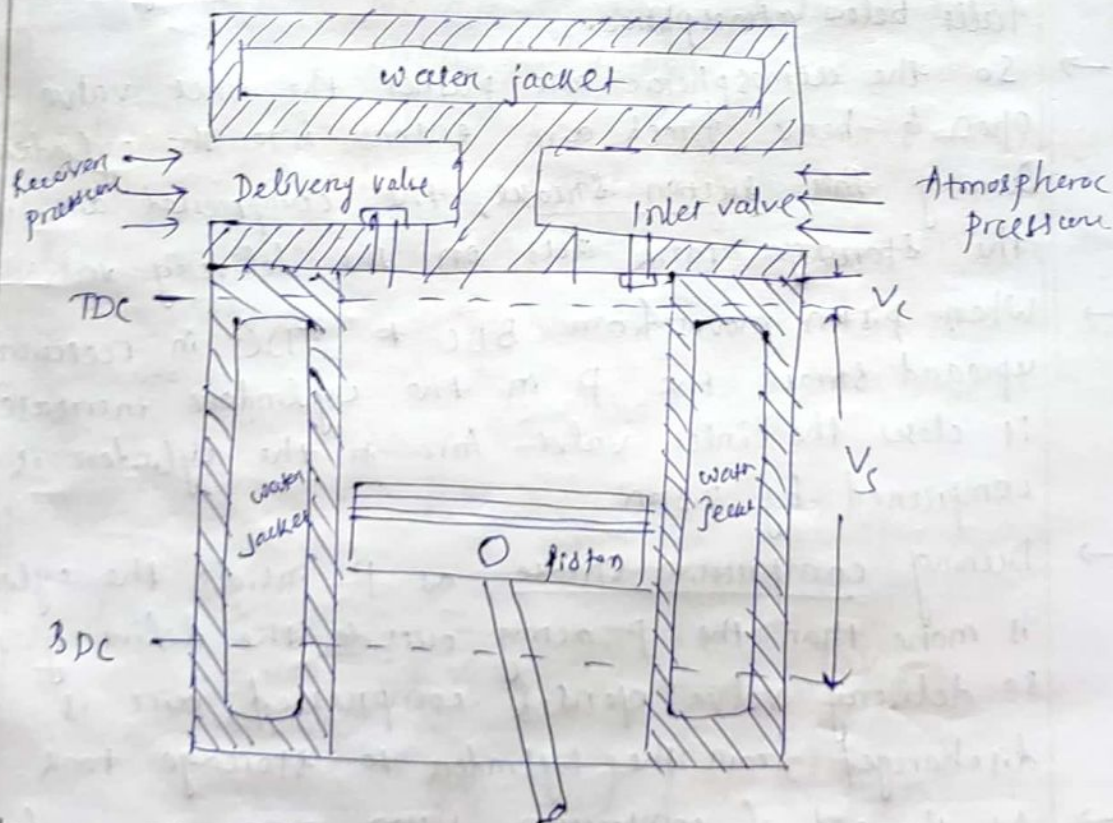 water jacket
Receiver
pressure
Delivery valve
Inlet valve
Atmospheroc
Pressure
TDC
Vc
Vs
water
jacket
water
piston
BDC